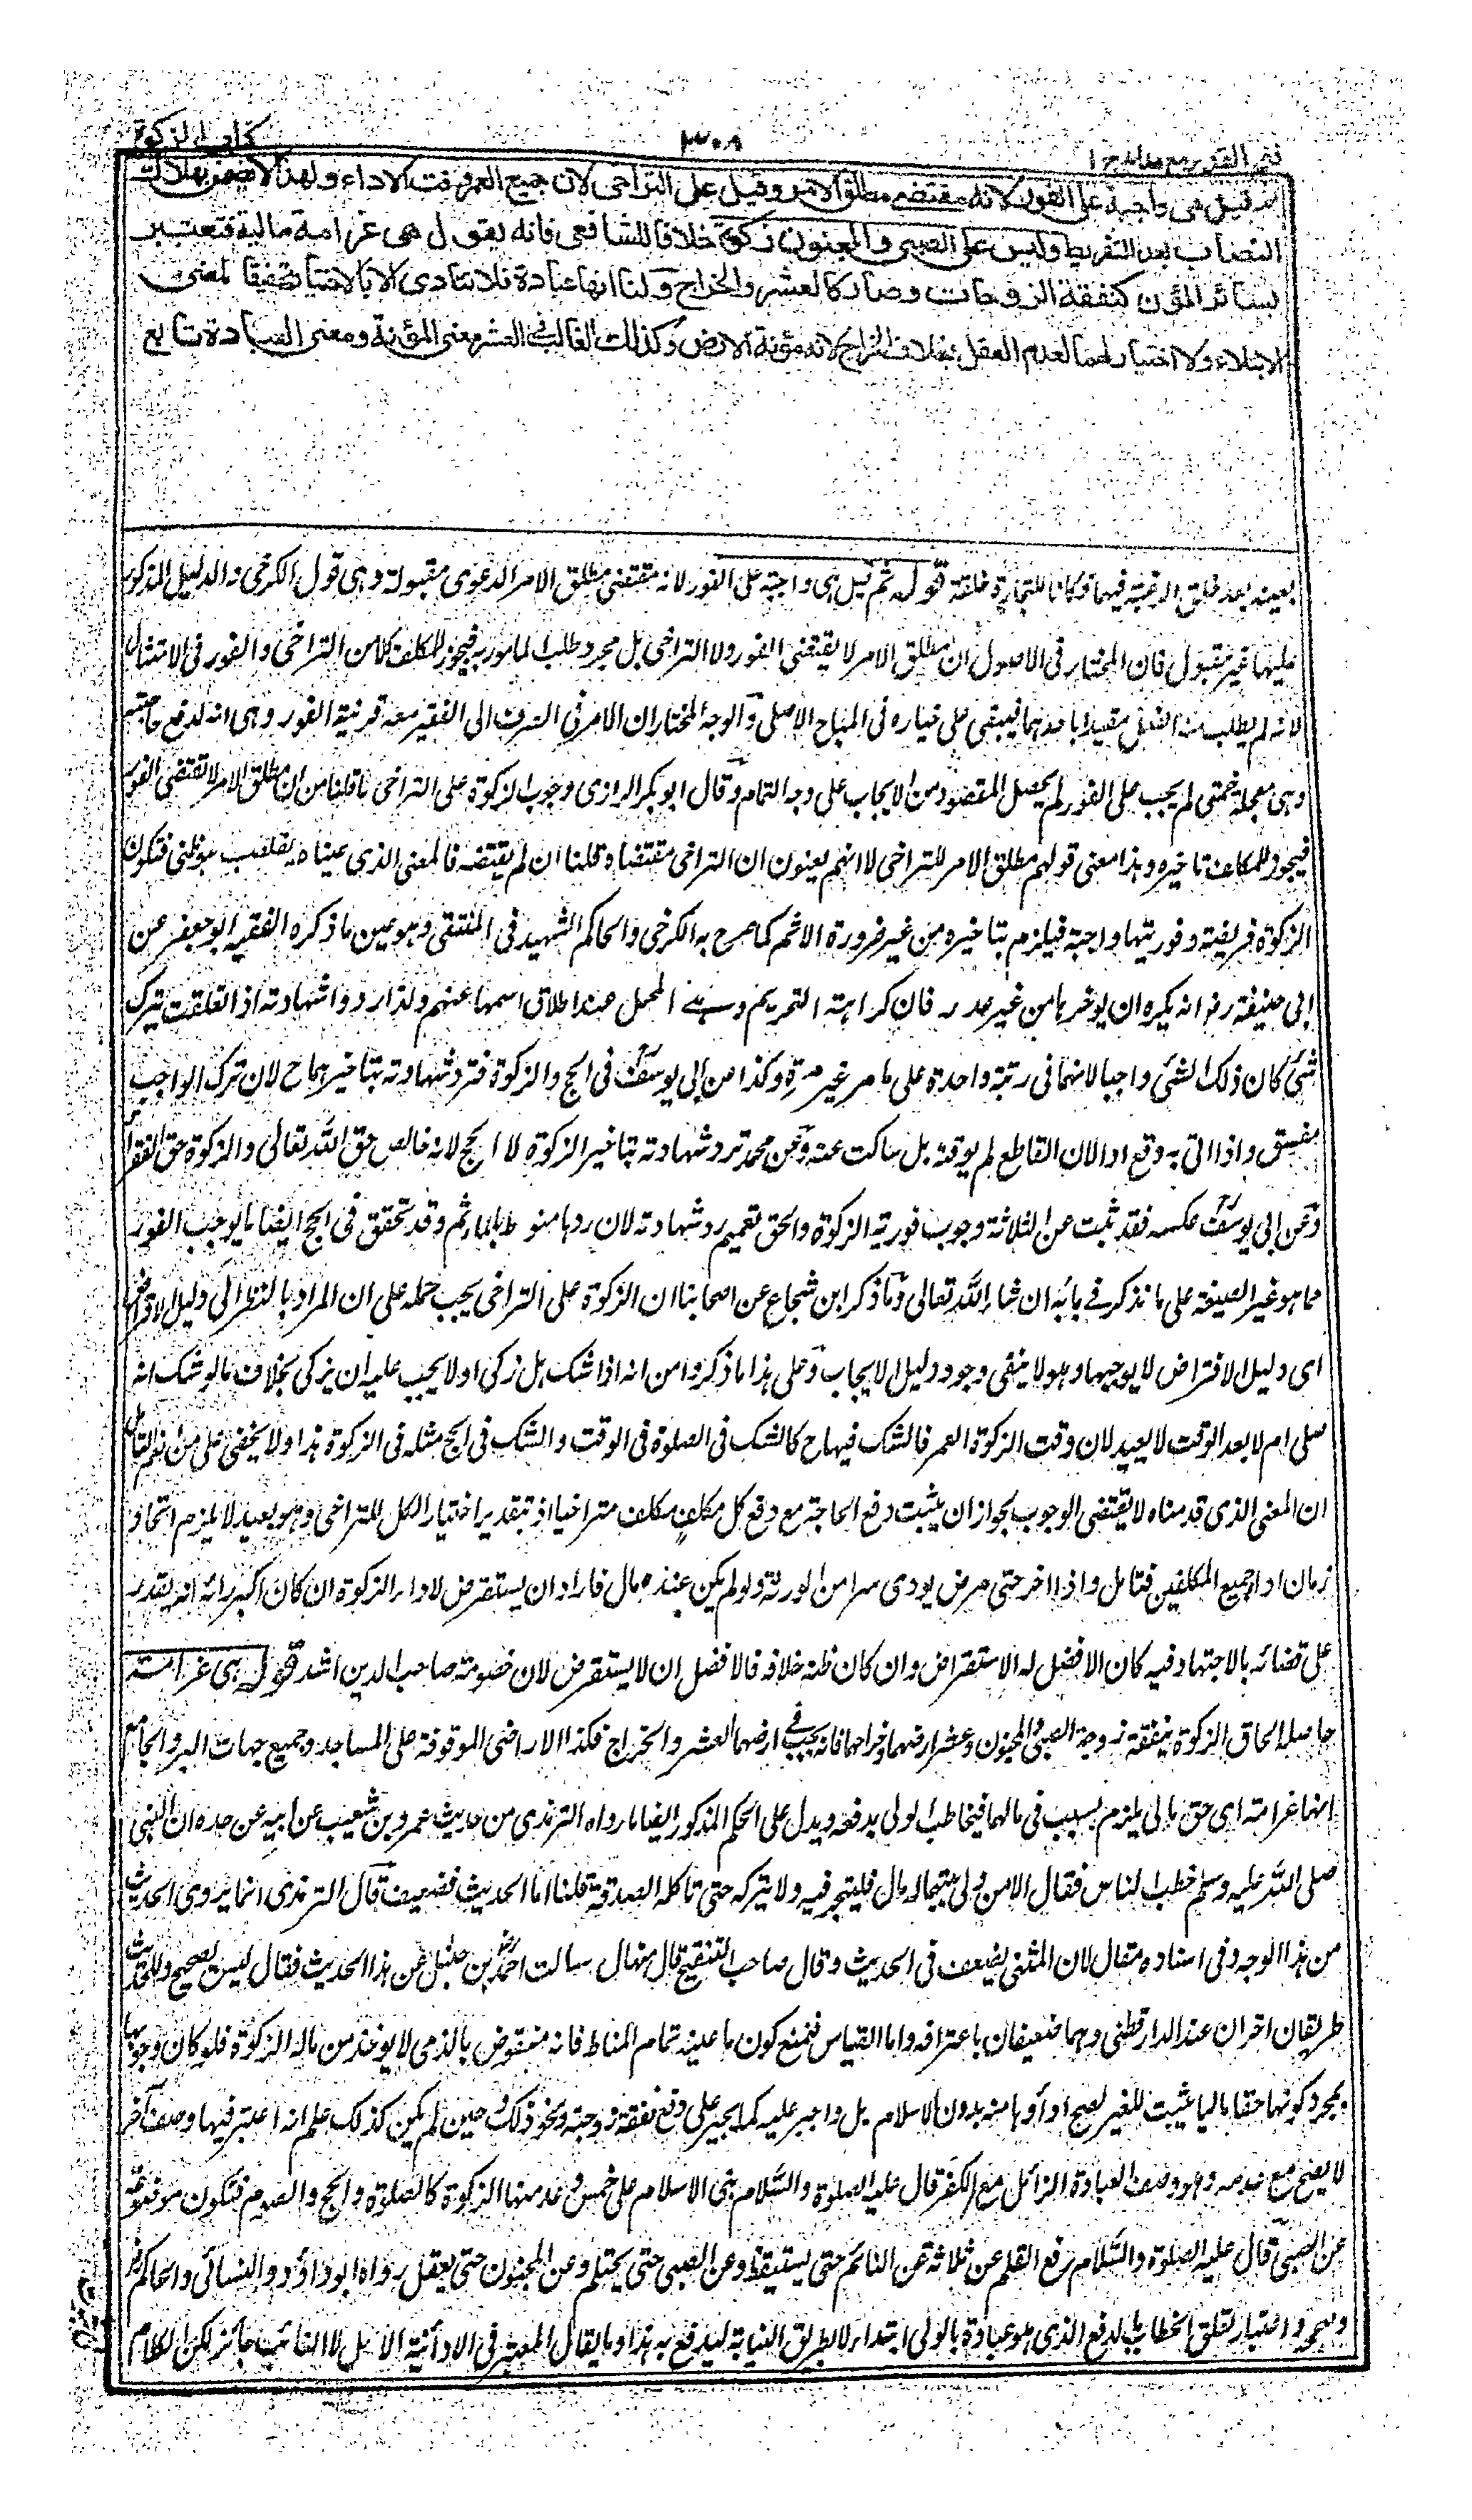 فتح القدير مع هدايه ج ١
٣٠٨
كتاب الزكوة
ثم قيل هى واجبة على الفور لانه مقتضى مطلق الامر وقيل على التراخى لان جميع العمر وقت الاداء ولهذا لا يضمن بهلاك
النصاب بعد التفريط وليس على الصبى والمجنون زكوة خلافا للشافعى فانه يقول هى غرامة مالية فتعتبر
بسائر المؤن كنفقة الزوجات وصار كالعشر والخراج ولنا انها عبادة فلا يتادى الا بالاختيار تحقيقا لمعنى
الابتلاء ولا اختيار لهما لعدم العقل بخلاف الخراج لانه مؤنة الارض وكذلك الغالب فى العشر معنى المؤنة ومعنى العبادة تابع
بعينه بعد خلق الرغبة فيهما وكانا للتجارة خلقة قوله ثم قيل هى واجبة على الفور لانه مقتضى مطلق الامر الدعوى مقبولة وهى قول الكرخى والدليل المذكور
عليها غير مقبول فان المختار فى الاصول ان مطلق الامر لا يقتضى الفور ولا التراخى بل مجرد طلب المامور به فيجوز للمكلف كلا من التراخى والفور فى الامتثال
لانه لم يطلب منه الفعل مقيدا باحدهما فيبقى على خياره فى المباح الاصلى والوجه المختار ان الامر فى الصرف الى الفقير معه قرينة الفور وهى انه لدفع حاجته
وهى معجلة فمتى لم يجب على الفور لم يحصل المقصود من الايجاب على وجه التمام وقال ابو بكر الرازى وجوب الزكوة على التراخى لما قلنا من ان مطلق الامر لا يقتضى الفور
فيجوز للمكلف تاخيره وهذا معنى قولهم مطلق الامر للتراخى لا انهم يعنون ان التراخى مقتضاه قلنا ان لم يقتضه فالمعنى الذى عيناه يقتضيه وهو ظنى فتكون
الزكوة فريضة وفوريتها واجبة فيلزم بتاخيره من غير ضرورة الاثم كما صرح به الكرخى والحاكم الشهيد فى المنتقى وهو عين ما ذكره الفقيه ابو جعفر عن
ابى حنيفة رض انه يكره ان يوخرها من غير عذر فان كراهة التحريم هى المحمل عند اطلاق اسمها عنهم ولذا ردوا شهادته اذا تعلقت بترك
شئ كان ذلك الشئ واجبا لانهما فى رتبة واحدة على ما مر غير مرة وكذا عن ابى يوسف فى الحج والزكوة فترد شهادته بتاخيرهما ح لان ترك الواجب
مفسق واذا اتى به وقع اداء لان القاطع لم يوقته بل ساكت عنه وعن محمد ترد شهادته بتاخير الزكوة لا الحج لانه خالص حق الله تعالى والزكوة حق الفقراء
وعن ابى يوسف عكسه فقد ثبت عن الثلاثة وجوب فورية الزكوة والحق تعميم رد شهادته لان ردها منوط بالماثم وقد تحقق فى الحج ايضا ما يوجب الفور
مما هو غير الصيغة على ما نذكر فى بابه ان شاء الله تعالى وما ذكر ابن شجاع عن اصحابنا ان الزكوة على التراخى يجب حمله على ان المراد بالنظر الى دليل الافتراض
اى دليل الافتراض لا يوجبها وهو لا ينفى وجود دليل الايجاب وعلى هذا ما ذكروا من انه اذا شك هل زكى او لا يجب عليه ان يزكى بخلاف ما لو شك انه
صلى ام لا بعد الوقت لا يعيد لان وقت الزكوة العمر فالشك فيها ح كالشك فى الصلوة فى الوقت والشك فى الحج مثله فى الزكوة هذا ولا يخفى على من انعم التامل
ان المعنى الذى قدمناه لا يقتضى الوجوب لجواز ان يثبت دفع الحاجة مع دفع كل مكلف مكلف متراخيا اذ بتقدير اختيار الكل للتراخى وهو بعيد لا يلزم اتحاد
زمان اداء جميع المكلفين فتامل واذا اخر حتى مرض يودى سرا من الورثة ولو لم يكن عنده مال فاراد ان يستقرض لاداء الزكوة ان كان اكبر رائه انه يقدر
على قضائه بالاجتهاد فيه كان الافضل له الاستقراض وان كان ظنه خلافه فالافضل ان لا يستقرض لان خصومة صاحب الدين اشد قوله هى غرامة
حاصله الحاق الزكوة بنفقة زوجة الصبى والمجنون وعشر ارضهما وخراجها فانه يجب فى ارضهما العشر والخراج فكذا الاراضى الموقوفة على المساجد وجميع جهات البر والجامع
انها غرامة اى حق مالى يلزم بسبب فى مالهما فيخاطب الولى بدفعه ويدل على الحكم المذكور ايضا ما رواه الترمذى من حديث عمرو بن شعيب عن ابيه عن جده ان النبى
صلى الله عليه وسلم خطب الناس فقال الا من ولى يتيما له مال فليتجر فيه ولا يتركه حتى تاكله الصدقة قلنا اما الحديث فضعيف قال الترمذى انما يروى الحديث
من هذا الوجه وفى اسناده مقال لان المثنى يضعف فى الحديث وقال صاحب التنقيح قال مهنا سالت احمد بن حنبل عن هذا الحديث فقال ليس بصحيح وللحديث
طريقان اخران عند الدارقطنى وهما ضعيفان باعترافه واما القياس فنمنع كون ما عينه تمام المناط فانه منقوض بالذمى لا يوخذ من ماله الزكوة فلو كان وجوبها
بمجرد كونها حقا ماليا يثبت للغير لصح اداؤها منه بدون الاسلام بل واجبر عليه كما يجبر على دفع نفقة زوجته ونحو ذلك وحين لم يكن كذلك علم انه اعتبر فيها وصف اخر
لا يصح مع عدمه وهو وصف العبادة الزائل مع الكفر قال عليه الصلوة والسلام بنى الاسلام على خمس وعد منها الزكوة كالصلوة والحج والصوم فتكون موضوعة
عن الصبى قال عليه الصلوة والسلام رفع القلم عن ثلاثة عن النائم حتى يستيقظ وعن الصبى حتى يحتلم وعن المجنون حتى يعقل رواه ابو داؤد والنسائى والحاكم
وصححه واعتبار تعلق الخطاب بالدفع الذى هو عبادة بالولى ابتداء لا بطريق النيابة ليدفع به هذا وما يقال المعتبر فى الاداء نية الاصل لا النائب جائز لكن الكلام